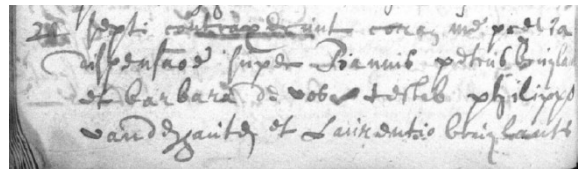 24 septi contraxerunt coram me prævia
dispensaõe super Bannis petrus
et barbara de vos testib philippo
vandezanten et Laurentio